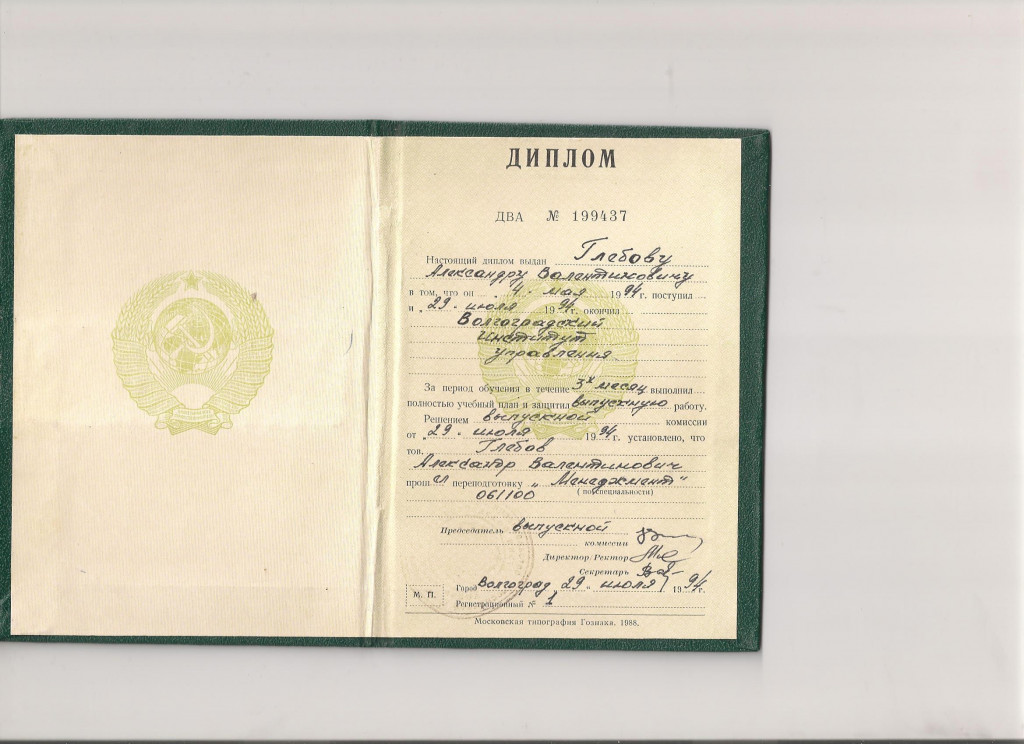 ДИПЛОМ
ДВА № 199437
Настоящий диплом выдан Глебову
Александру Валентиновичу
в том, что он „ 4 „ мая 1994 г. поступил
и „ 29 „ июля 1994 г. окончил
Волгоградский
Институт
управления
За период обучения в течение 3х месяц выполнил
полностью учебный план и защитил выпускную работу.
Решением выпускной комиссии
от „ 29 „ июля 1994 г. установлено, что
тов. Глебов
Александр Валентинович
прошел переподготовку „ Менеджмент"
061100 (по специальности)
Председатель выпускной
комиссии
Директор/Ректор
Секретарь
Город Волгоград „ 29 „ июля 1994 г.
М. П.
Регистрационный № 1
Московская типография Гознака. 1988.